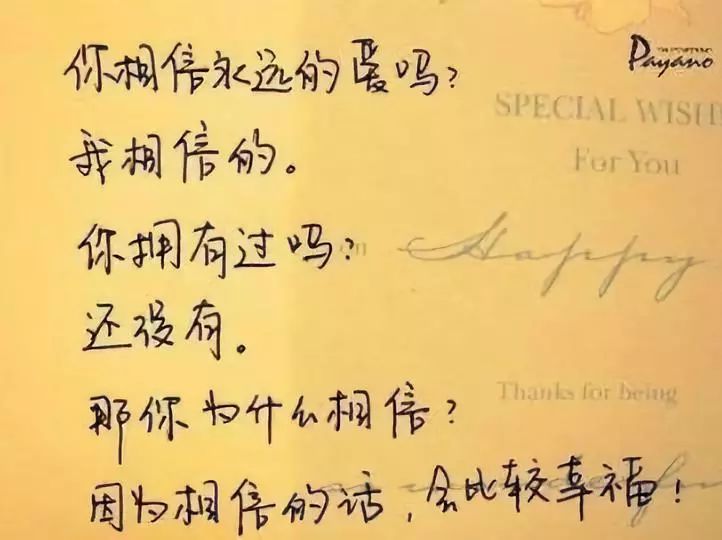 Payano
你相信永远的爱吗?
SPECIAL WISH
我相信的。
For You
你拥有过吗?
Happy
还没有。
Thanks for being
那你为什么相信?
因为相信的话,会比较幸福!